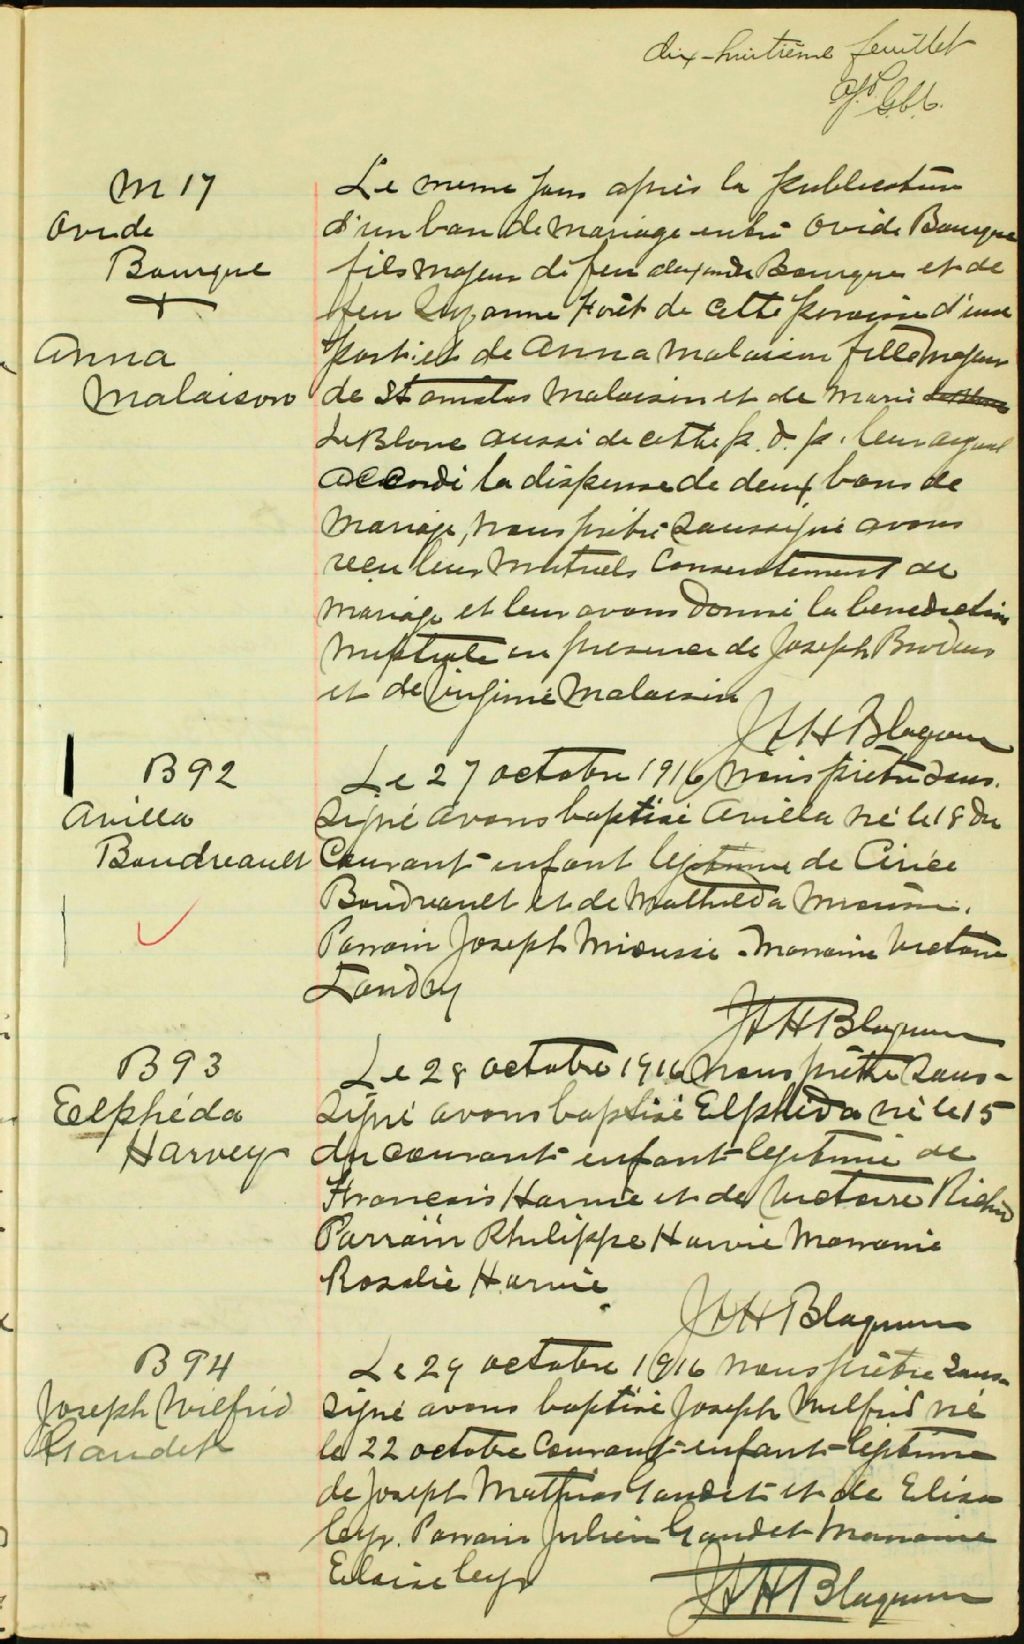 dix-huitième feuillet
M 17
Ovide
Bourque
+
Anna
Malaison
Le meme jour après la publication
d'un ban de mariage entre Ovide Bourque
fils majeur de feu Bourque et de
feu Suzanne Forêt de cette paroisse d'une
part et de Anna Malaison fille majeur
de Stanislas Malaison et de Marie
LeBlanc aussi de cette p. d. p. leur ayant
accordé la dispense de deux bans de
mariage, nous prêtre soussigné avons
reçu leur mutuels consentement de
mariage et leur avons donné la benediction
nuptiale en presence de Joseph
et de Virginie Malaison
JAH Blaquiere
B 92
Avilla
Boudreault
Le 27 octobre 1916 nous prêtre sous-
signé avons baptisé Avilla né le 18 du
courant enfant legitime de
Boudreault et de Mathilda
Parrain Joseph Miousse. Marraine Victoire
Landry
JAH Blaquiere
B 93
Eelphéda
Harvey
Le 28 octobre 1916 nous prêtre sous-
signé avons baptisé Elphéda né le 15
du courant enfant legitime de
Francois Harvie et de Victoire Richard
Parrain Philippe Harvie Marraine
Rosalie Harvie
JAH Blaquiere
B 94
Joseph Wilfrid
Gaudet
Le 29 octobre 1916 nous prêtre sous-
signé avons baptisé Joseph Wilfrid né
le 22 octobre courant enfant legitime
de Joseph Mathias Gaudet et de Elisa
Cyr. Parrain Julien Gaudet Marraine
Eloise Cyr
JAH Blaquiere